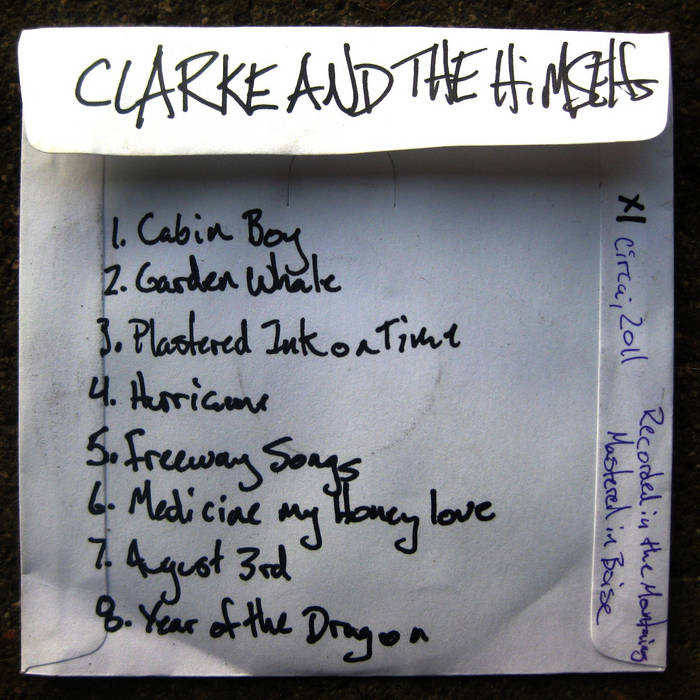 CLARKE AND THE HIMSELFS
1. Cabin Boy
2. Garden Whale
3. Plastered Ink on Time
4. Hurricane
5. Freeway Songs
6. Medicine my Honey love
7. August 3rd
8. Year of the Dragon
XI Circa, 2011
Recorded in the Mountains
Mastered in Boise